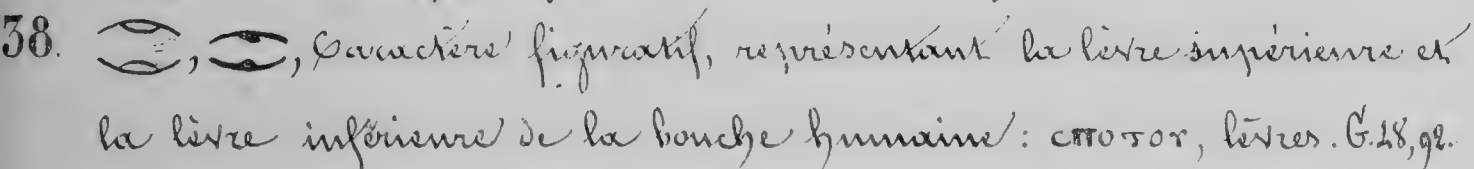 38. , , Caractère figuratif, représentant la lèvre supérieure et
la lèvre inférieure de la bouche humaine : ⲥⲡⲟⲧⲟⲩ, lèvres. G. 28, 92.